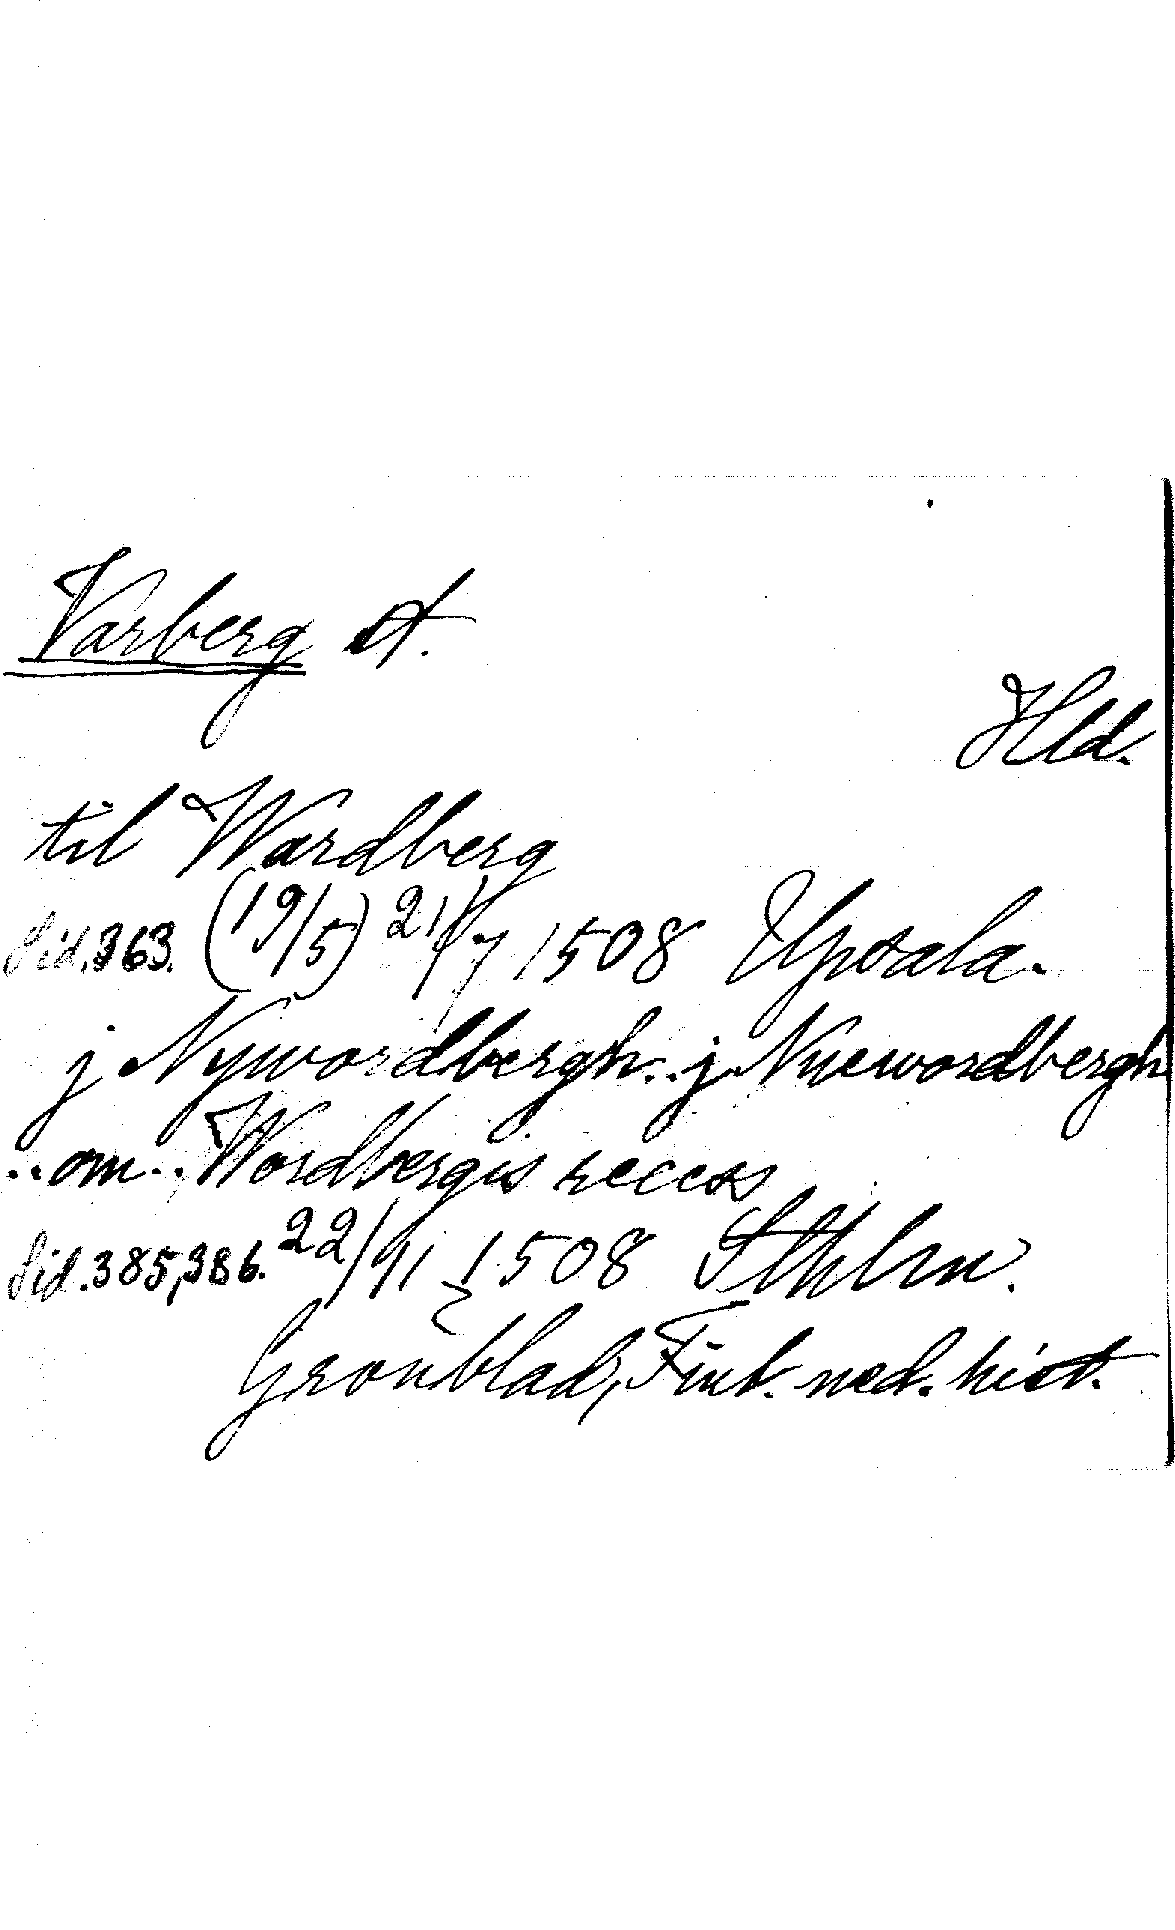 Varberg st.
Hld.
til Wardberg
Sid. 363. (19/5) 21/7 1508 Upsala.
j Nywordbergh .. j Nyewordbergh
.. om .. Wordbergis recess
Sid. 385, 386. 22/11 1508 Sthlm.
Grönblad, Finl. med. hist.